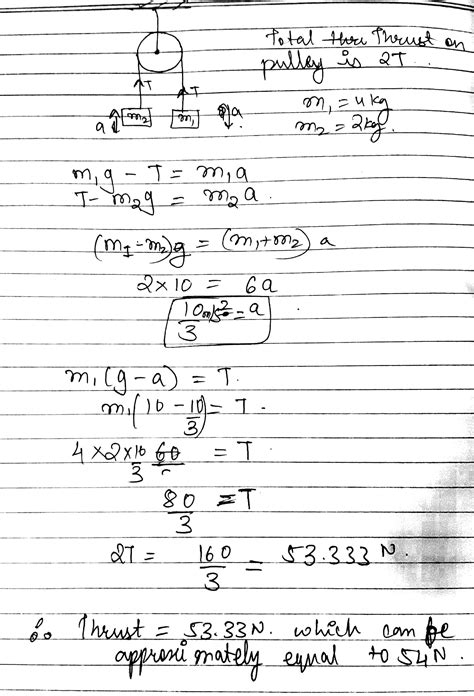 Total Thrust on
pulley is 2T.
T T
a m2 m1 a
m1 = 4kg
m2 = 2kg.
m1g - T = m1a
T - m2g = m2a.
(m1-m2)g = (m1+m2) a
2×10 = 6a
10/3 m/s2 = a
m1(g-a) = T.
m1(10 - 10/3) = T.
4×2×10/3 = T
80/3 = T
2T = 160/3 = 53.333 N.
∴ Thrust = 53.33N. which can be
approximately equal to 54N.